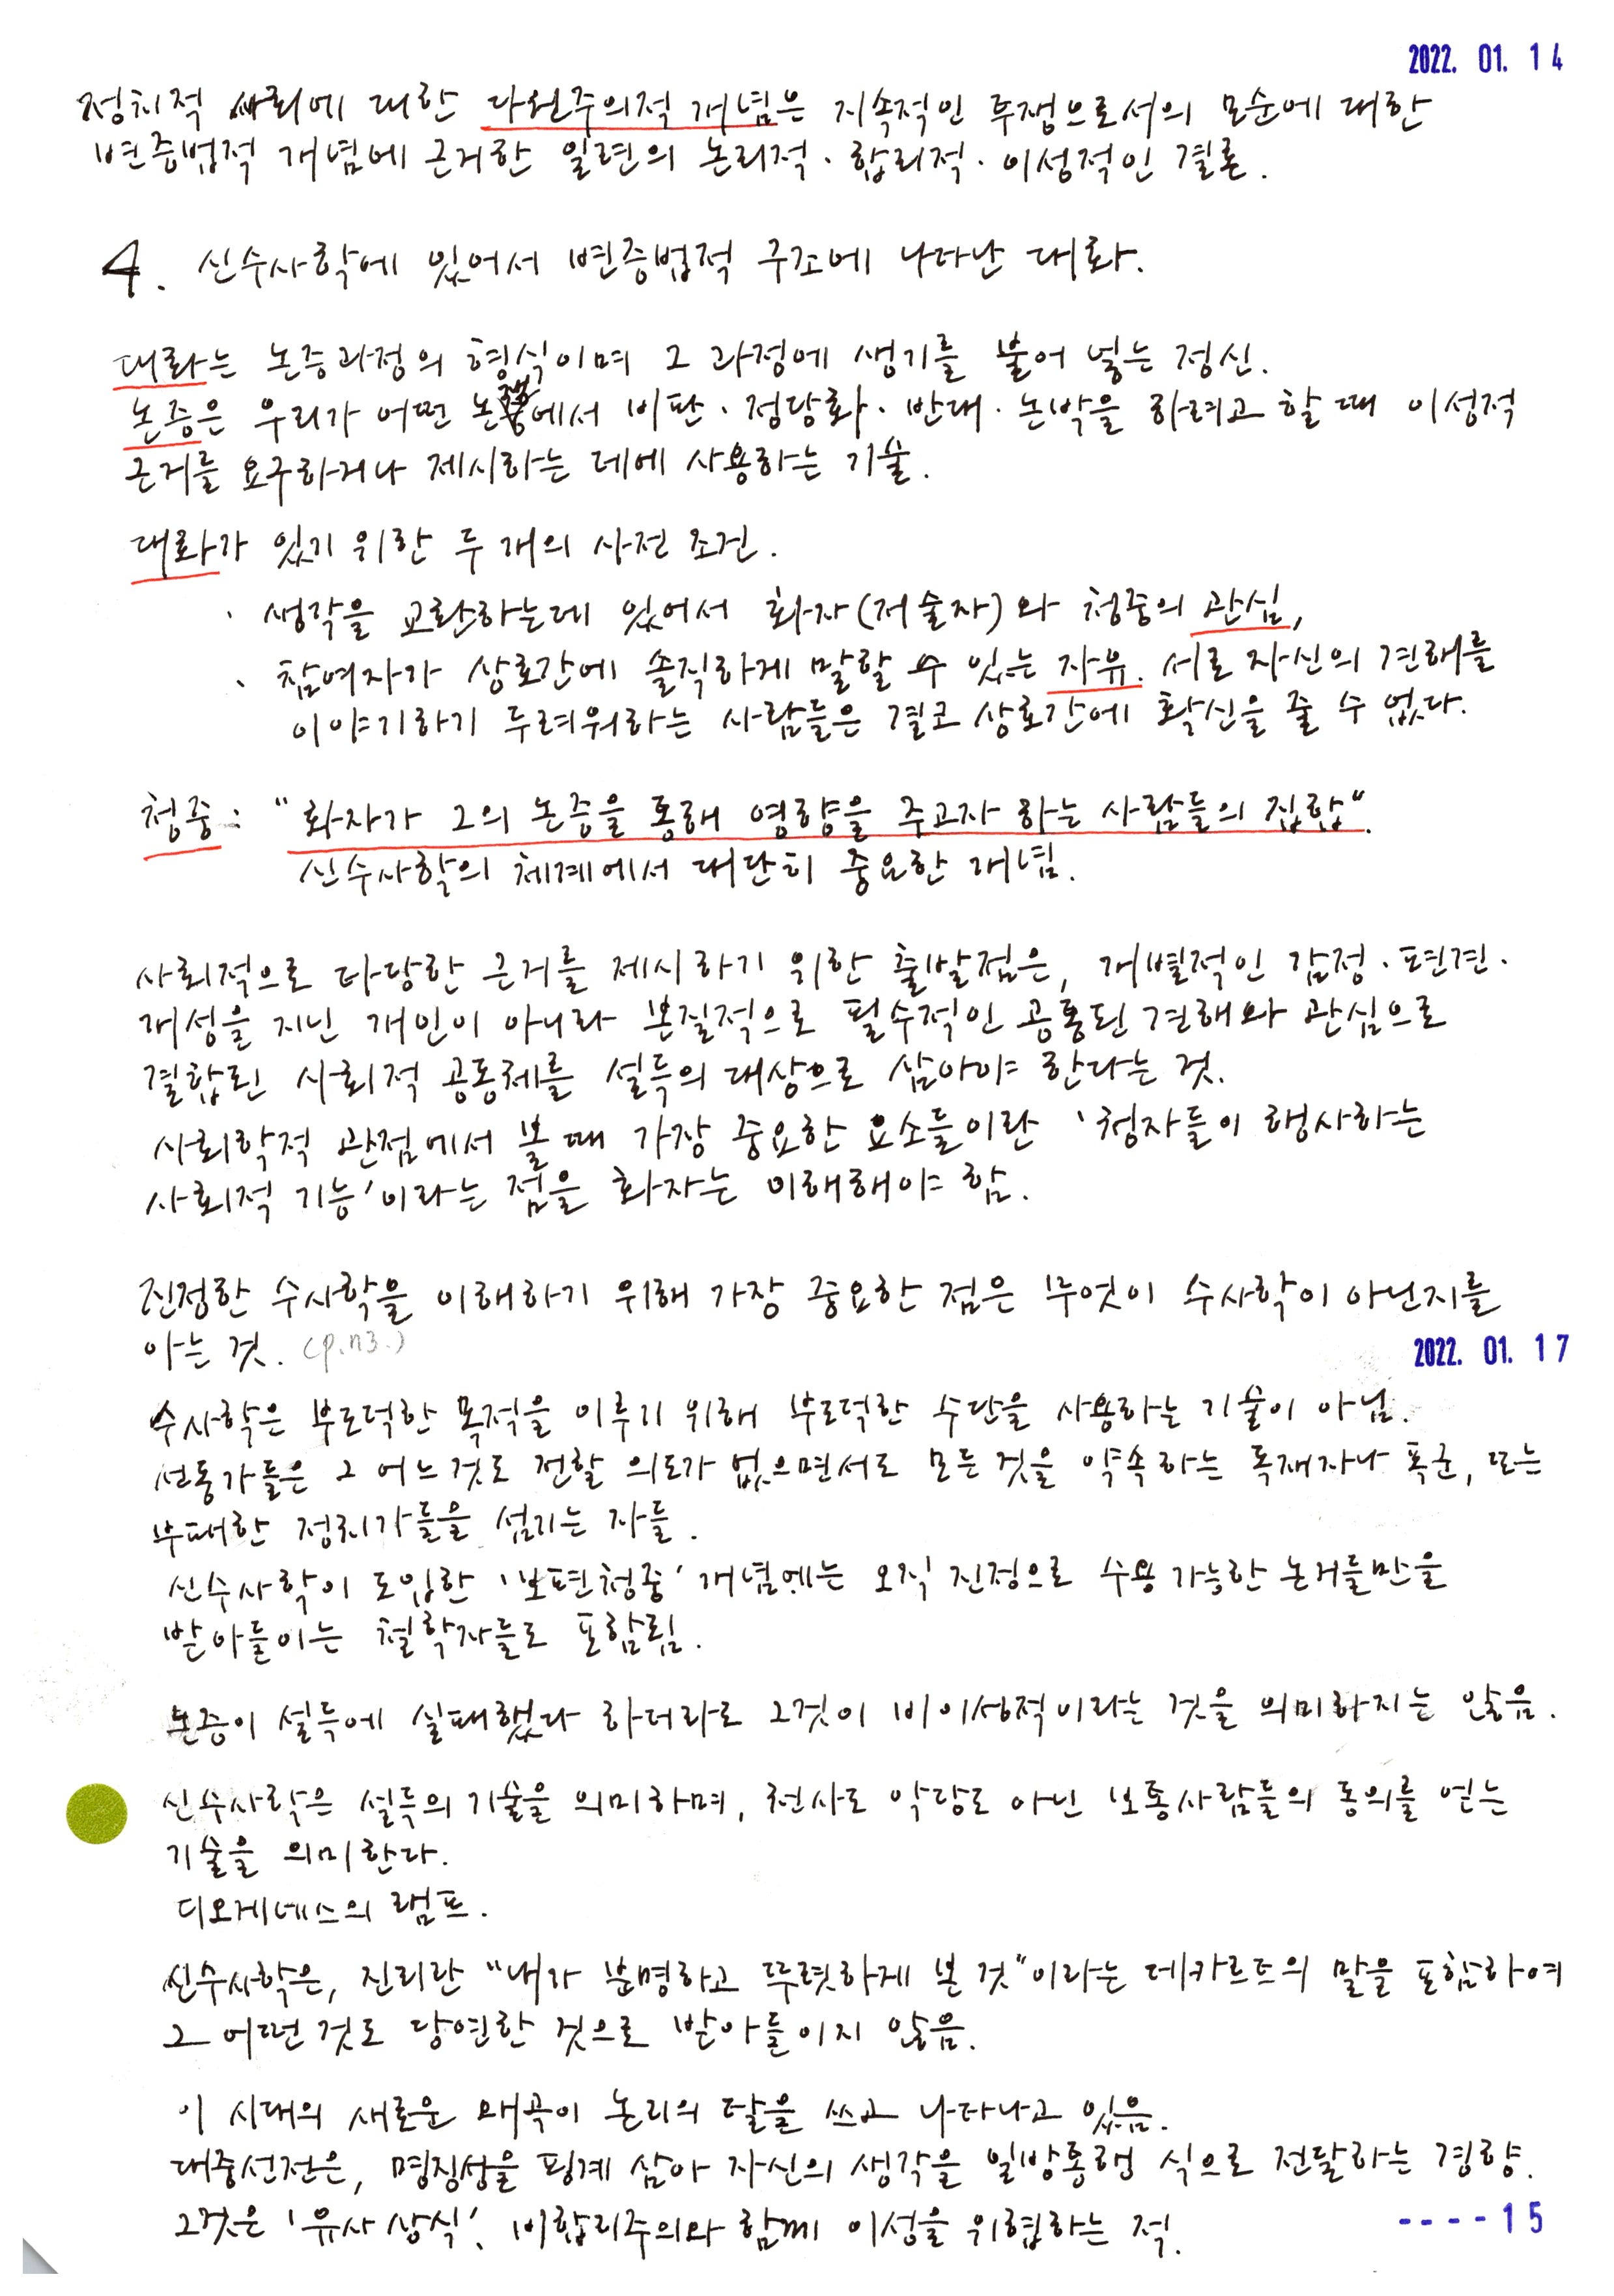 2022. 01. 14
정치적 사회에 대한 다원주의적 개념은 지속적인 투쟁으로서의 모순에 대한
변증법적 개념에 근거한 일련의 논리적·합리적·이성적인 결론.
4. 신수사학에 있어서 변증법적 구조에 나타난 대화.
대화는 논증과정의 형식이며 그 과정에 생기를 불어 넣는 정신.
논증은 우리가 어떤 논쟁에서 비판·정당화·반대·논박을 하려고 할 때 이성적
근거를 요구하거나 제시하는 데에 사용하는 기술.
대화가 있기 위한 두 개의 사전 조건.
· 생각을 교환하는데 있어서 화자(저술자)와 청중의 관심,
· 참여자가 상호간에 솔직하게 말할 수 있는 자유. 서로 자신의 견해를
이야기하기 두려워하는 사람들은 결코 상호간에 확신을 줄 수 없다.
청중: "화자가 그의 논증을 통해 영향을 주고자 하는 사람들의 집합".
신수사학의 체계에서 대단히 중요한 개념.
사회적으로 타당한 근거를 제시하기 위한 출발점은, 개별적인 감정·편견·
개성을 지닌 개인이 아니라 본질적으로 필수적인 공통된 견해와 관심으로
결합된 사회적 공동체를 설득의 대상으로 삼아야 한다는 것.
사회학적 관점에서 볼 때 가장 중요한 요소들이란 '청자들이 행사하는
사회적 기능'이라는 점을 화자는 이해해야 함.
진정한 수사학을 이해하기 위해 가장 중요한 점은 무엇이 수사학이 아닌지를
아는 것. (p.113.)
2022. 01. 17
수사학은 부도덕한 목적을 이루기 위해 부도덕한 수단을 사용하는 기술이 아님.
선동가들은 그 어느것도 전할 의도가 없으면서도 모든 것을 약속하는 독재자나 폭군, 또는
부패한 정치가들을 섬기는 자들.
신수사학이 도입한 '보편청중' 개념에는 오직 진정으로 수용 가능한 논거들만을
받아들이는 철학자들도 포함됨.
논증이 설득에 실패했다 하더라도 그것이 비이성적이라는 것을 의미하지는 않음.
신수사학은 설득의 기술을 의미하며, 천사도 악당도 아닌 보통사람들의 동의를 얻는
기술을 의미한다.
디오게네스의 램프.
신수사학은, 진리란 "내가 분명하고 뚜렷하게 본 것"이라는 데카르트의 말을 포함하여
그 어떤 것도 당연한 것으로 받아들이지 않음.
이 시대의 새로운 왜곡이 논리의 탈을 쓰고 나타나고 있음.
대중선전은, 명징성을 핑계 삼아 자신의 생각을 일방통행 식으로 전달하는 경향.
그것은 '유사 상식'. 비합리주의와 함께 이성을 위협하는 적.
----15